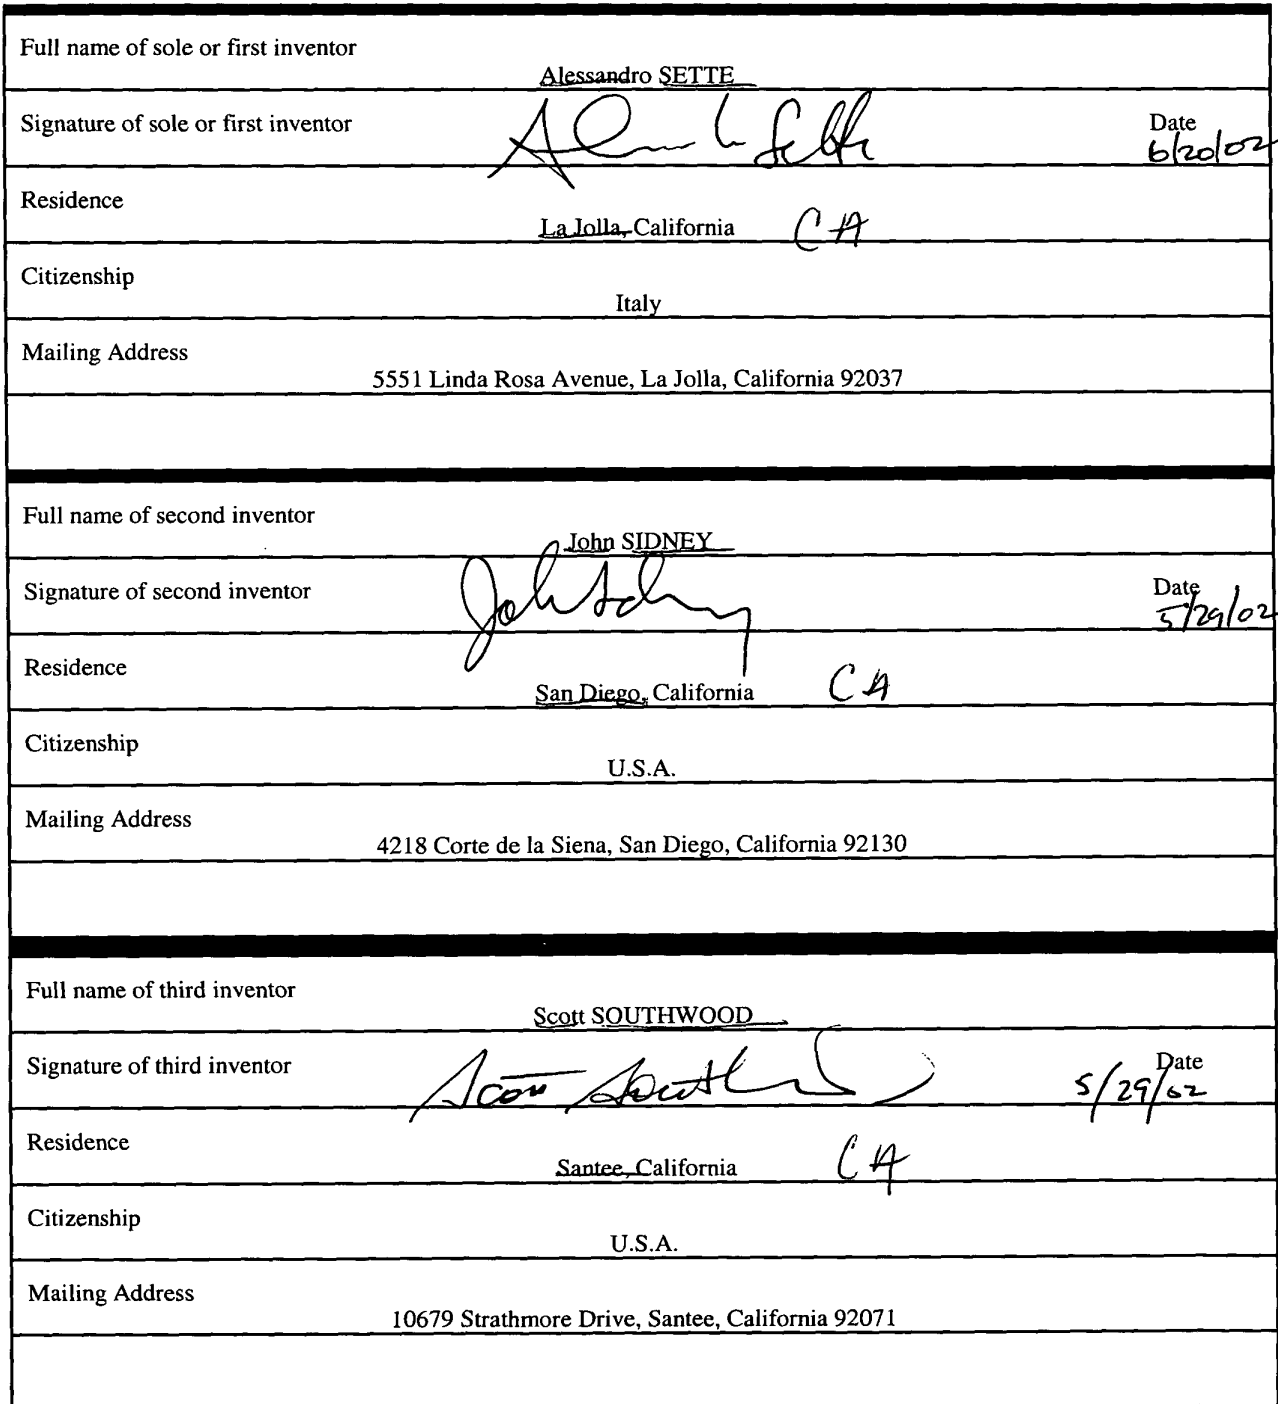 Full name of sole or first inventor
Alessandro SETTE
Signature of sole or first inventor
Date
6/20/02
Residence
La Jolla, California CA
Citizenship
Italy
Mailing Address
5551 Linda Rosa Avenue, La Jolla, California 92037
Full name of second inventor
John SIDNEY
Signature of second inventor
John Sidney
Date
5/29/02
Residence
San Diego, California CA
Citizenship
U.S.A.
Mailing Address
4218 Corte de la Siena, San Diego, California 92130
Full name of third inventor
Scott SOUTHWOOD
Signature of third inventor
Scott Southwood
Date
5/29/02
Residence
Santee, California CA
Citizenship
U.S.A.
Mailing Address
10679 Strathmore Drive, Santee, California 92071